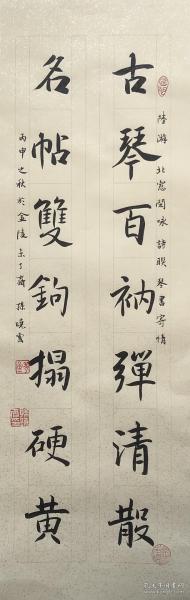 古琴百衲彈清散
陸游北窗閒咏詩聯琴書寄情
名帖雙鉤搨硬黄
丙申之秋於金陵
孫曉雲